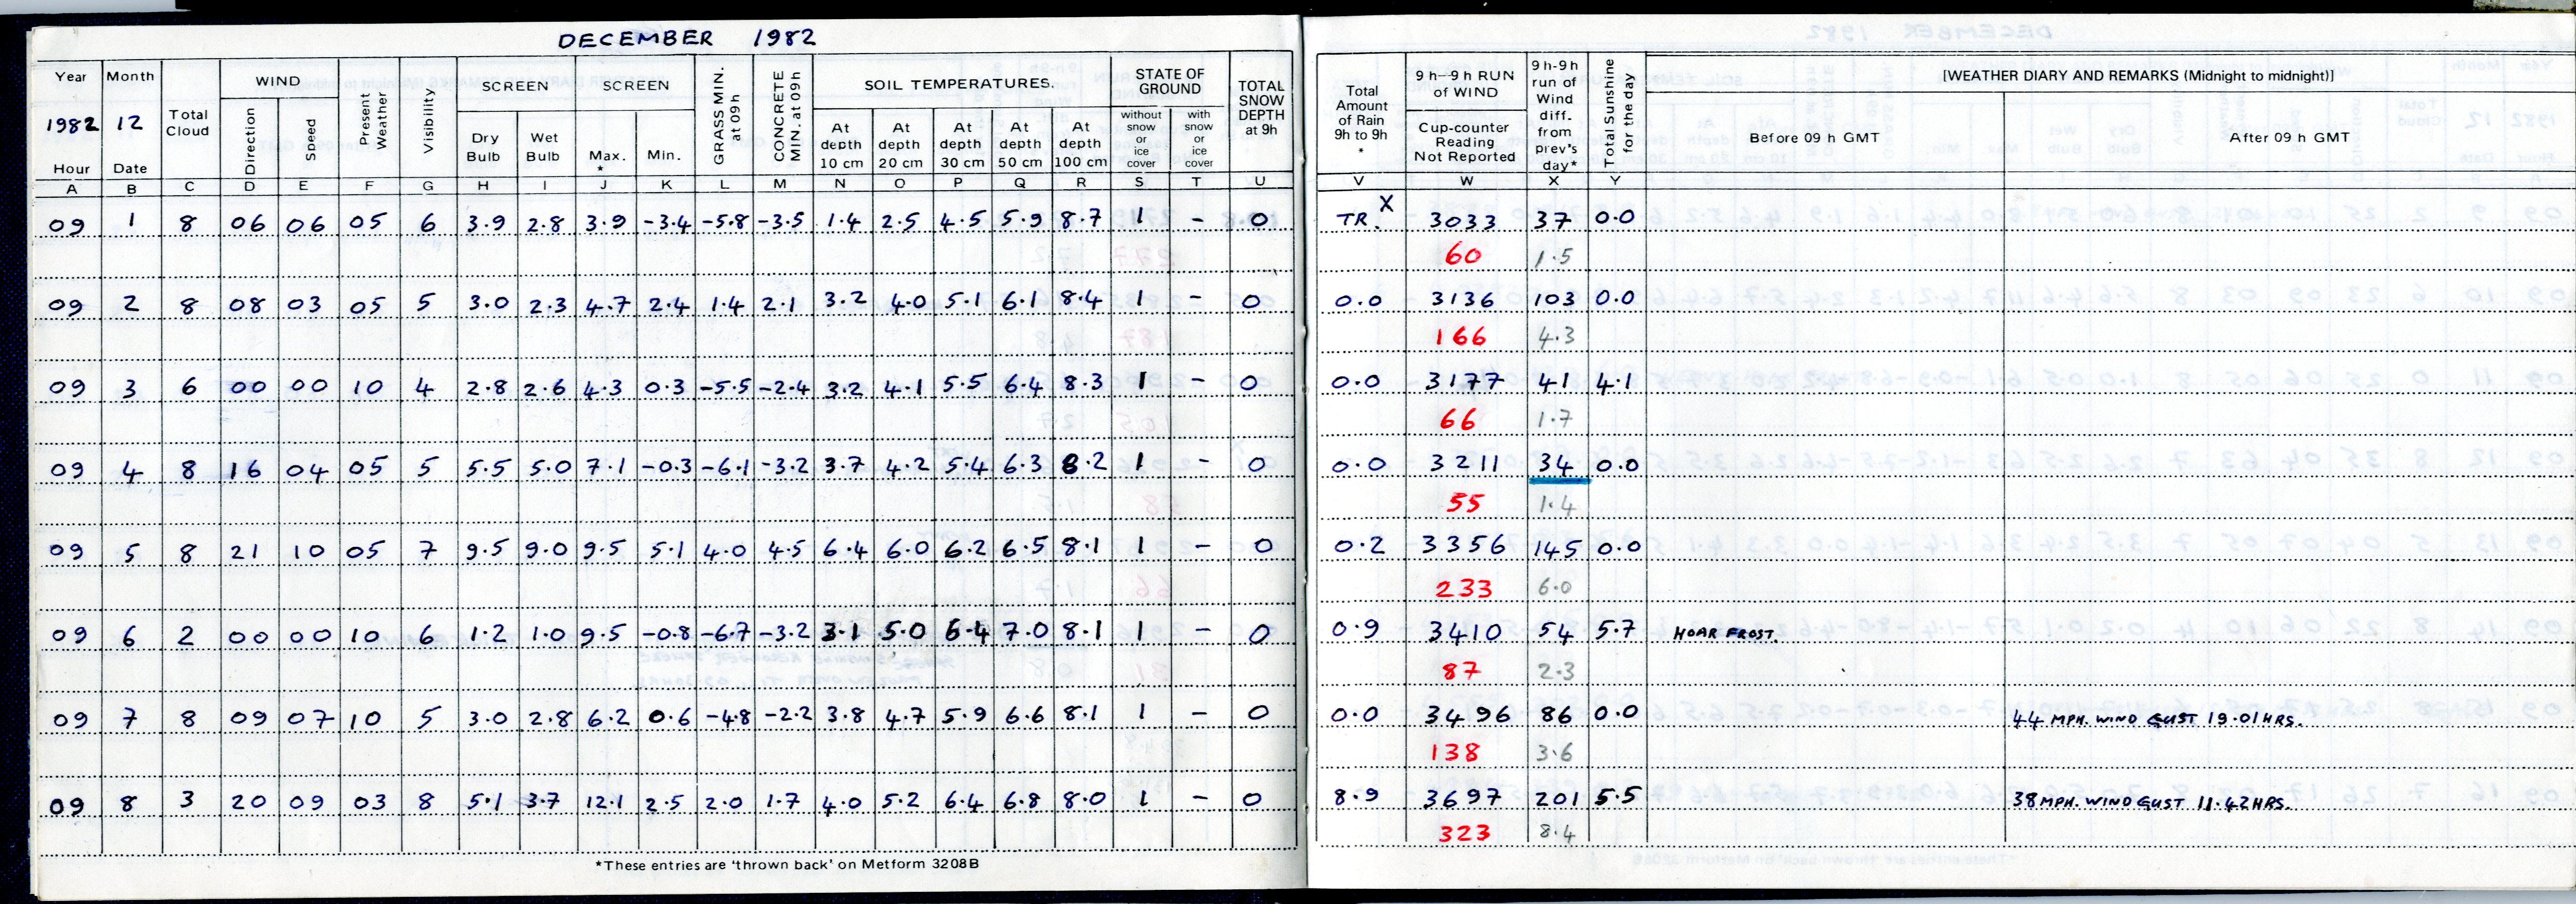 DECEMBER 1982
Year Month Total Cloud WIND Present Weather Visibility SCREEN SCREEN GRASS MIN. at 09h CONCRETE MIN. at 09h SOIL TEMPERATURES. STATE OF GROUND TOTAL SNOW DEPTH at 9h Total Amount of Rain 9h to 9h * 9 h–9 h RUN of WIND 9 h-9h run of Wind diff. from prev's day* Total Sunshine for the day [WEATHER DIARY AND REMARKS (Midnight to midnight)]
1982 12 Direction Speed Dry Bulb Wet Bulb Max. * Min. At depth 10 cm At depth 20 cm At depth 30 cm At depth 50 cm At depth 100 cm without snow or ice cover with snow or ice cover Cup-counter Reading Not Reported Before 09 h GMT After 09 h GMT
Hour Date
A B C D E F G H I J K L M N O P Q R S T U V W X Y
09 1 8 06 06 05 6 3.9 2.8 3.9 -3.4 -5.8 -3.5 1.4 2.5 4.5 5.9 8.7 1 - 0 TR. X 3033 37 0.0
60 1.5
09 2 8 08 03 05 5 3.0 2.3 4.7 2.4 1.4 2.1 3.2 4.0 5.1 6.1 8.4 1 - 0 0.0 3136 103 0.0
166 4.3
09 3 6 00 00 10 4 2.8 2.6 4.3 0.3 -5.5 -2.4 3.2 4.1 5.5 6.4 8.3 1 - 0 0.0 3177 41 4.1
66 1.7
09 4 8 16 04 05 5 5.5 5.0 7.1 -0.3 -6.1 -3.2 3.7 4.2 5.4 6.3 8.2 1 - 0 0.0 3211 34 0.0
55 1.4
09 5 8 21 10 05 7 9.5 9.0 9.5 5.1 4.0 4.5 6.4 6.0 6.2 6.5 8.1 1 - 0 0.2 3356 145 0.0
233 6.0
09 6 2 00 00 10 6 1.2 1.0 9.5 -0.8 -6.7 -3.2 3.1 5.0 6.4 7.0 8.1 1 - 0 0.9 3410 54 5.7 HOAR FROST.
87 2.3
09 7 8 09 07 10 5 3.0 2.8 6.2 0.6 -4.8 -2.2 3.8 4.7 5.9 6.6 8.1 1 - 0 0.0 3496 86 0.0 44 MPH. WIND GUST 19.01HRS.
138 3.6
09 8 3 20 09 03 8 5.1 3.7 12.1 2.5 2.0 1.7 4.0 5.2 6.4 6.8 8.0 1 - 0 8.9 3697 201 5.5 38 MPH. WIND GUST 11.42HRS.
323 8.4
*These entries are 'thrown back' on Metform 3208B